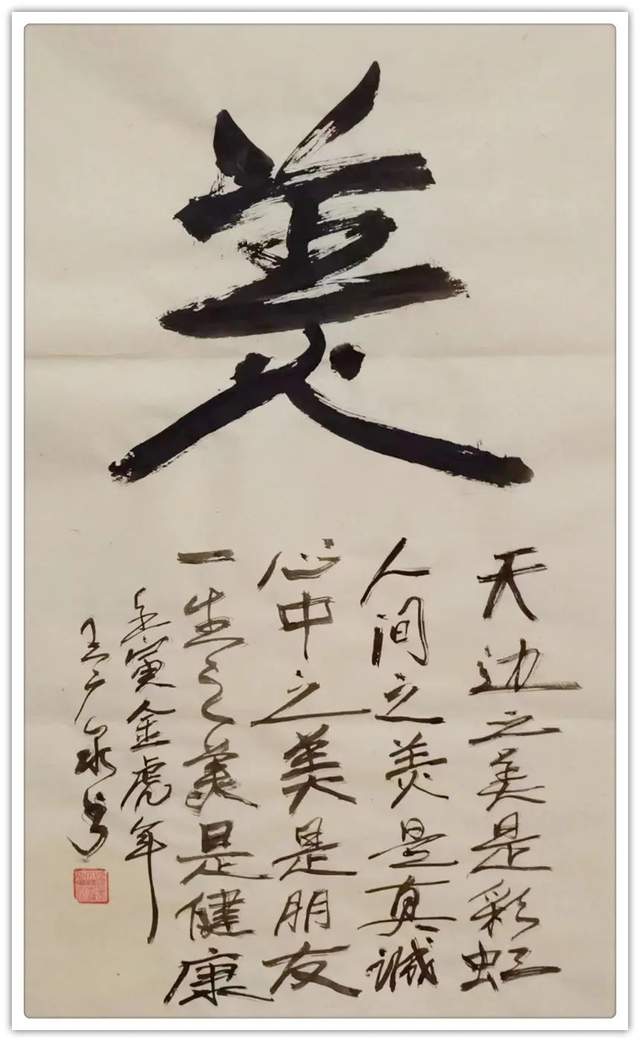 美
天边之美是彩虹
人间之美是真诚
心中之美是朋友
一生之美是健康
壬寅金虎年
王广泉书